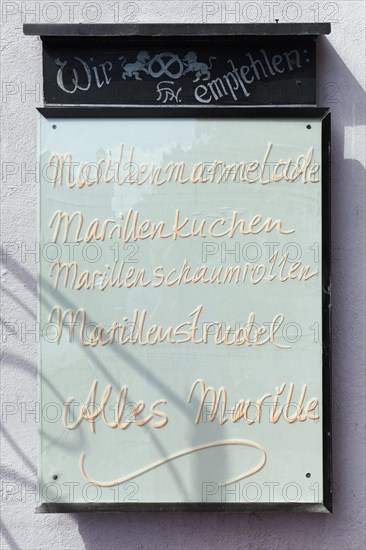 Wir empfehlen:
Marillenmarmelade
Marillenkuchen
Marillenschaumrollen
Marillenstrudel
Alles Marille